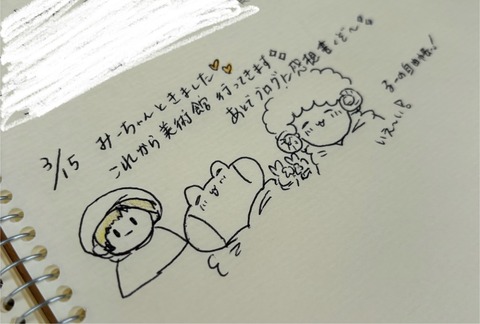 3/15 みーちゃんときました
これから美術館 行ってきます
あとでブログに感想書くぞ〜
いえーい!